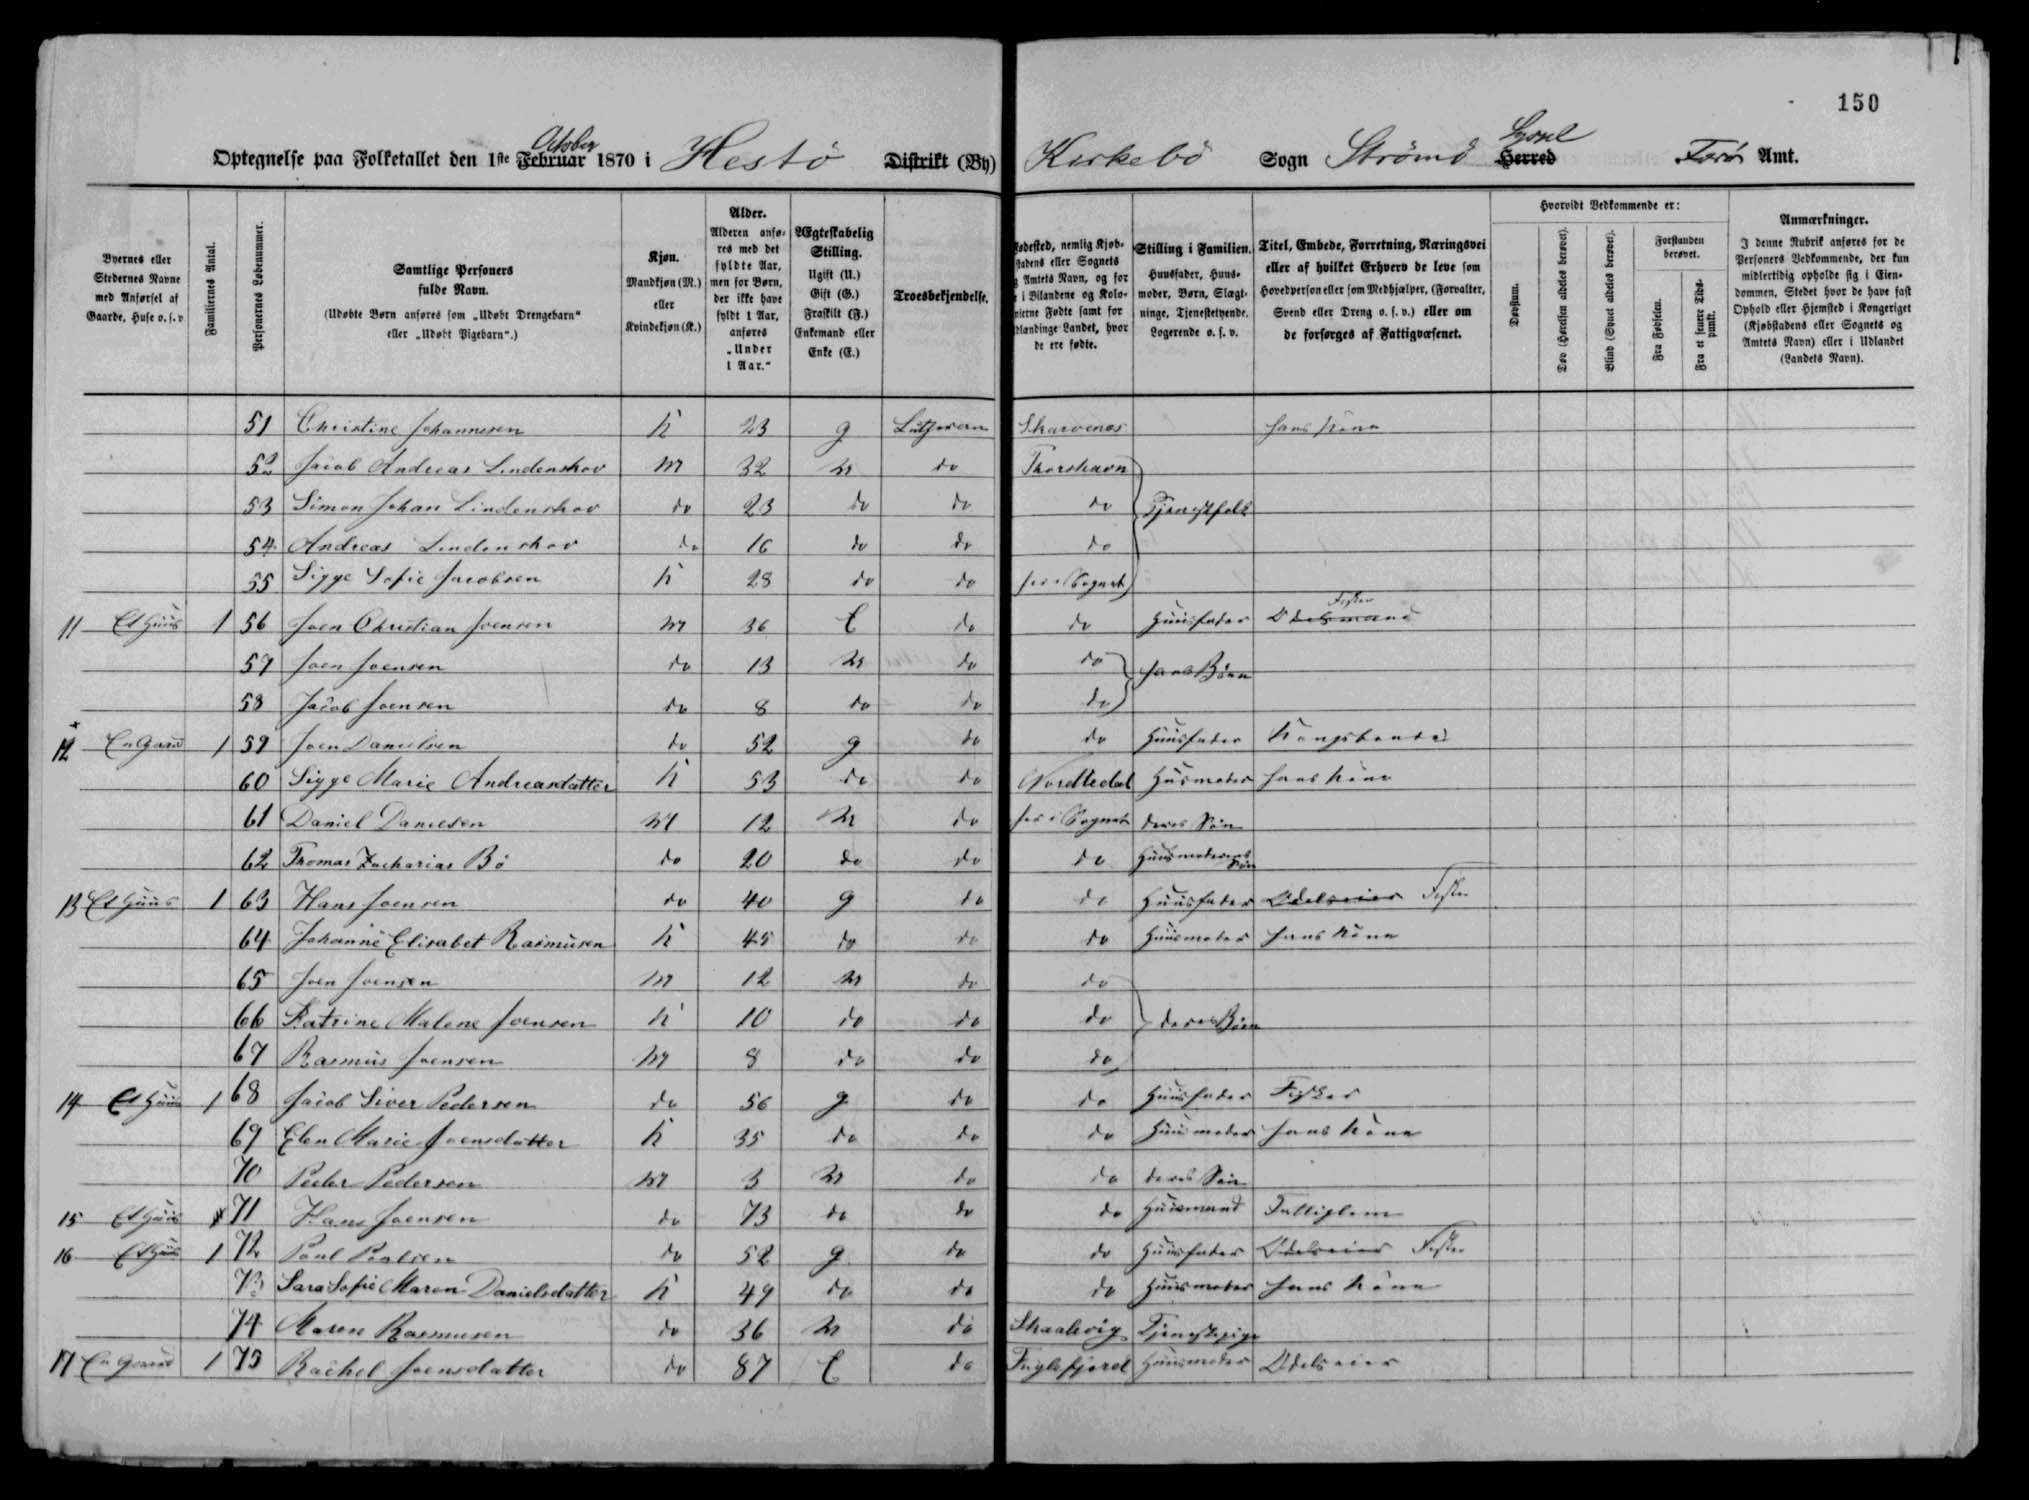 150
Optegnelse paa Folketallet den 1ste Februar October 1870 i Hestö Distrikt (By) Kirkebö Sogn Strömö Herred Syssel Færö Amt.
Byernes eller Stedernes Navne med Anførsel af Gaarde, Huse o. s. v.
Familiernes Antal.
Personernes Løbenummer.
Samtlige Personers fulde Navn.
(Udøbte Børn anføres som „Udøbt Drengebarn“ eller „Udøbt Pigebarn“.)
Kjøn.
Mandkjøn (M.) eller Kvindekjøn (K.)
Alder.
Alderen anføres med det fyldte Aar, men for Børn, der ikke have fyldt 1 Aar, anføres „Under 1 Aar.“
Ægteskabelig Stilling.
Ugift (U.) Gift (G.) Fraskilt (F.) Enkemand eller Enke (E.)
Troesbekjendelse.
Fødested, nemlig Kjøbstadens eller Sognets og Amtets Navn, og for de i Bilandene og Kolonierne Fødte samt for Udlændinge Landet, hvor de ere fødte.
Stilling i Familien.
Huusfader, Huusmoder, Børn, Slægtninge, Tjenestetyende, Logerende o. s. v.
Titel, Embede, Forretning, Næringsvei eller af hvilket Erhverv de leve som Hovedperson eller som Medhjælper, (Forvalter, Svend eller Dreng o. s. v.) eller om de forsørges af Fattigvæsenet.
Hvorvidt Vedkommende er:
Døvstum.
Døv (Hørelsen aldeles berøvet).
Blind (Synet aldeles berøvet).
Forstanden berøvet.
Fra Fødselen.
Fra et senere Tidspunkt.
Anmærkninger.
I denne Rubrik anføres for de Personers Vedkommende, der kun midlertidig opholde sig i Eiendommen, Stedet hvor de have fast Ophold eller Hjemsted i Kongeriget (Kjøbstadens eller Sognets og Amtets Navn) eller i Udlandet (Landets Navn).
51 Christine Johannesen K 23 g Luthersen Skarvenes hans Kone
52 Jacob Andreas Lindenskov M 32 U do Thorshavn
53 Simon Johan Lindenskov do 23 do do do Tjenestfolk
54 Andreas Lindenskov do 16 do do do
55 Sigge Sofie Jacobsen K 28 do do her i Sognet
11 Et Huus 1 56 Joen Christian Joensen M 36 E do do Huusfader Odelsmand Fester
57 Joen Joensen do 13 U do do hans Börn
58 Jacob Joensen do 8 do do do
12 En Gaard 1 59 Joen Danielsen do 52 g do do Huusfader Kongsbonde
60 Sigge Marie Andreasdatter K 53 do do Nordredal Husmoder hans Kone
61 Daniel Danielsen M 12 U do her i Sognet deres Sön
62 Thomas Zacharias Bö do 20 do do do Huusmoderens Sön
13 Et Huus 1 63 Hans Joensen do 40 g do do Huusfader Odelseier Fester
64 Johanne Elisabet Rasmusen K 45 do do do Huusmoder hans Kone
65 Joen Joensen M 12 U do do
66 Katrine Malene Joensen K 10 do do do deres Börn
67 Rasmus Joensen M 8 do do do
14 Et Huus 1 68 Jacob Siver Pedersen do 56 g do do Huusfader Fisker
69 Elen Marie Joensdatter K 35 do do do Huusmoder hans Kone
70 Peder Pedersen M 3 U do do deres Sön
15 Et Huus 71 Hans Joensen do 73 do do do Huusmand Fattiglem
16 Et Huus 1 72 Poul Poulsen do 52 g do do Huusfader Odelseier Fester
73 Sara Sofie Maren Danielsdatter K 49 do do do Huusmoder hans Kone
74 Maren Rasmusen do 36 U do Skaalevig Tjenestepige
17 En Gaard 1 75 Rachel Joensdatter do 87 E do Fuglefjord Huusmoder Odelseier